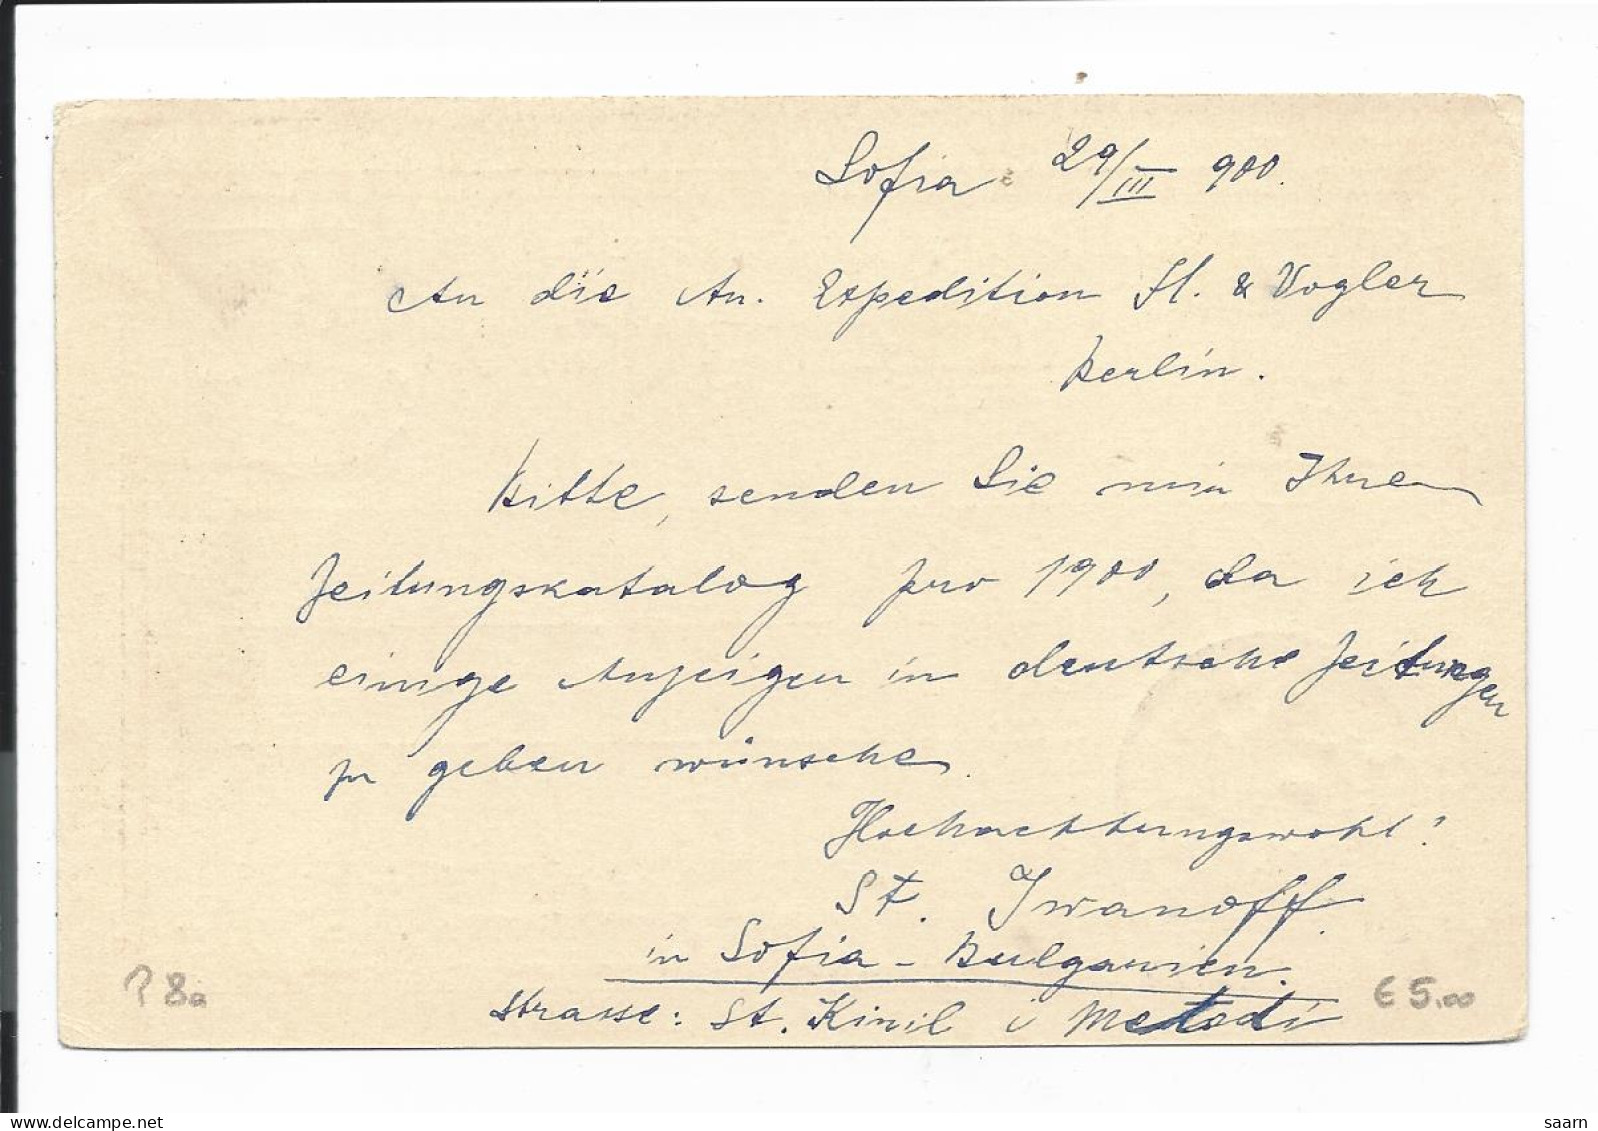 Sofia 29/III 900.
An die An. Expedition H. & Vogler
Berlin.
Bitte, senden Sie mir Ihren
Zeitungskatalog pro 1900, da ich
einige Anzeigen in deutsche Zeitungen
zu geben wünsche.
Hochachtungswohl!
St. Iwanoff.
in Sofia - Bulgarien.
Strasse: St. Kiril i Metodi
P 8a
€ 5.00
www.delcampe.net
saarn